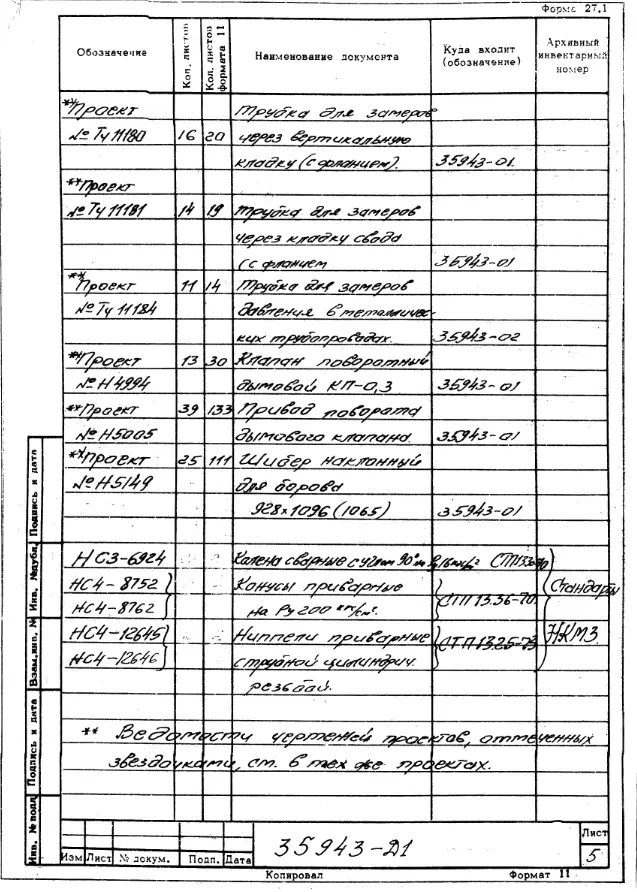 Форма 27.1
Обозначение Кол. листов Кол. листов формата 11 Наименование документа Куда входит (обозначение) Архивный инвентарный номер
**Проект Трубка для замеров
№ Ту 11180 16 20 через вертикальную
кладку (с фланцем). 35943-01
**Проект
№ Ту 11181 14 19 Трубка для замеров
через кладку свода
(с фланцем 35943-01
**Проект 11 14 Трубка для замеров
№ Ту 11184 давления в металличес-
ких трубопроводах. 35943-02
**Проект 13 30 Клапан поворотный
№ Н4994 дымовой КП-0,3 35943-01
**Проект 39 133 Привод поворота
№ Н5005 дымового клапана. 35943-01
**Проект 25 111 Шибер наклонный
№ Н5149 для борова
928х1096 (1065) 35943-01
НС3-6924 Колена сварные с углом 90° СТП13.
НС4-8752 Конусы приварные Стандарты
НС4-8762 на Ру200 кгс/см². СТП 13.36-70
НС4-12645 Ниппели приварные СТП 13.25-73 НКМЗ
НС4-12646 с трубной цилиндрич.
резьбой.
** Ведомости чертежей проектов, отмеченных
звездочками, см. в тех же проектах.
Инв. № подл. Подпись и дата Взам. инв. № Инв. № дубл. Подпись и дата
35943-Д1
Лист
5
Изм Лист № докум. Подп. Дата
Копировал Формат 11